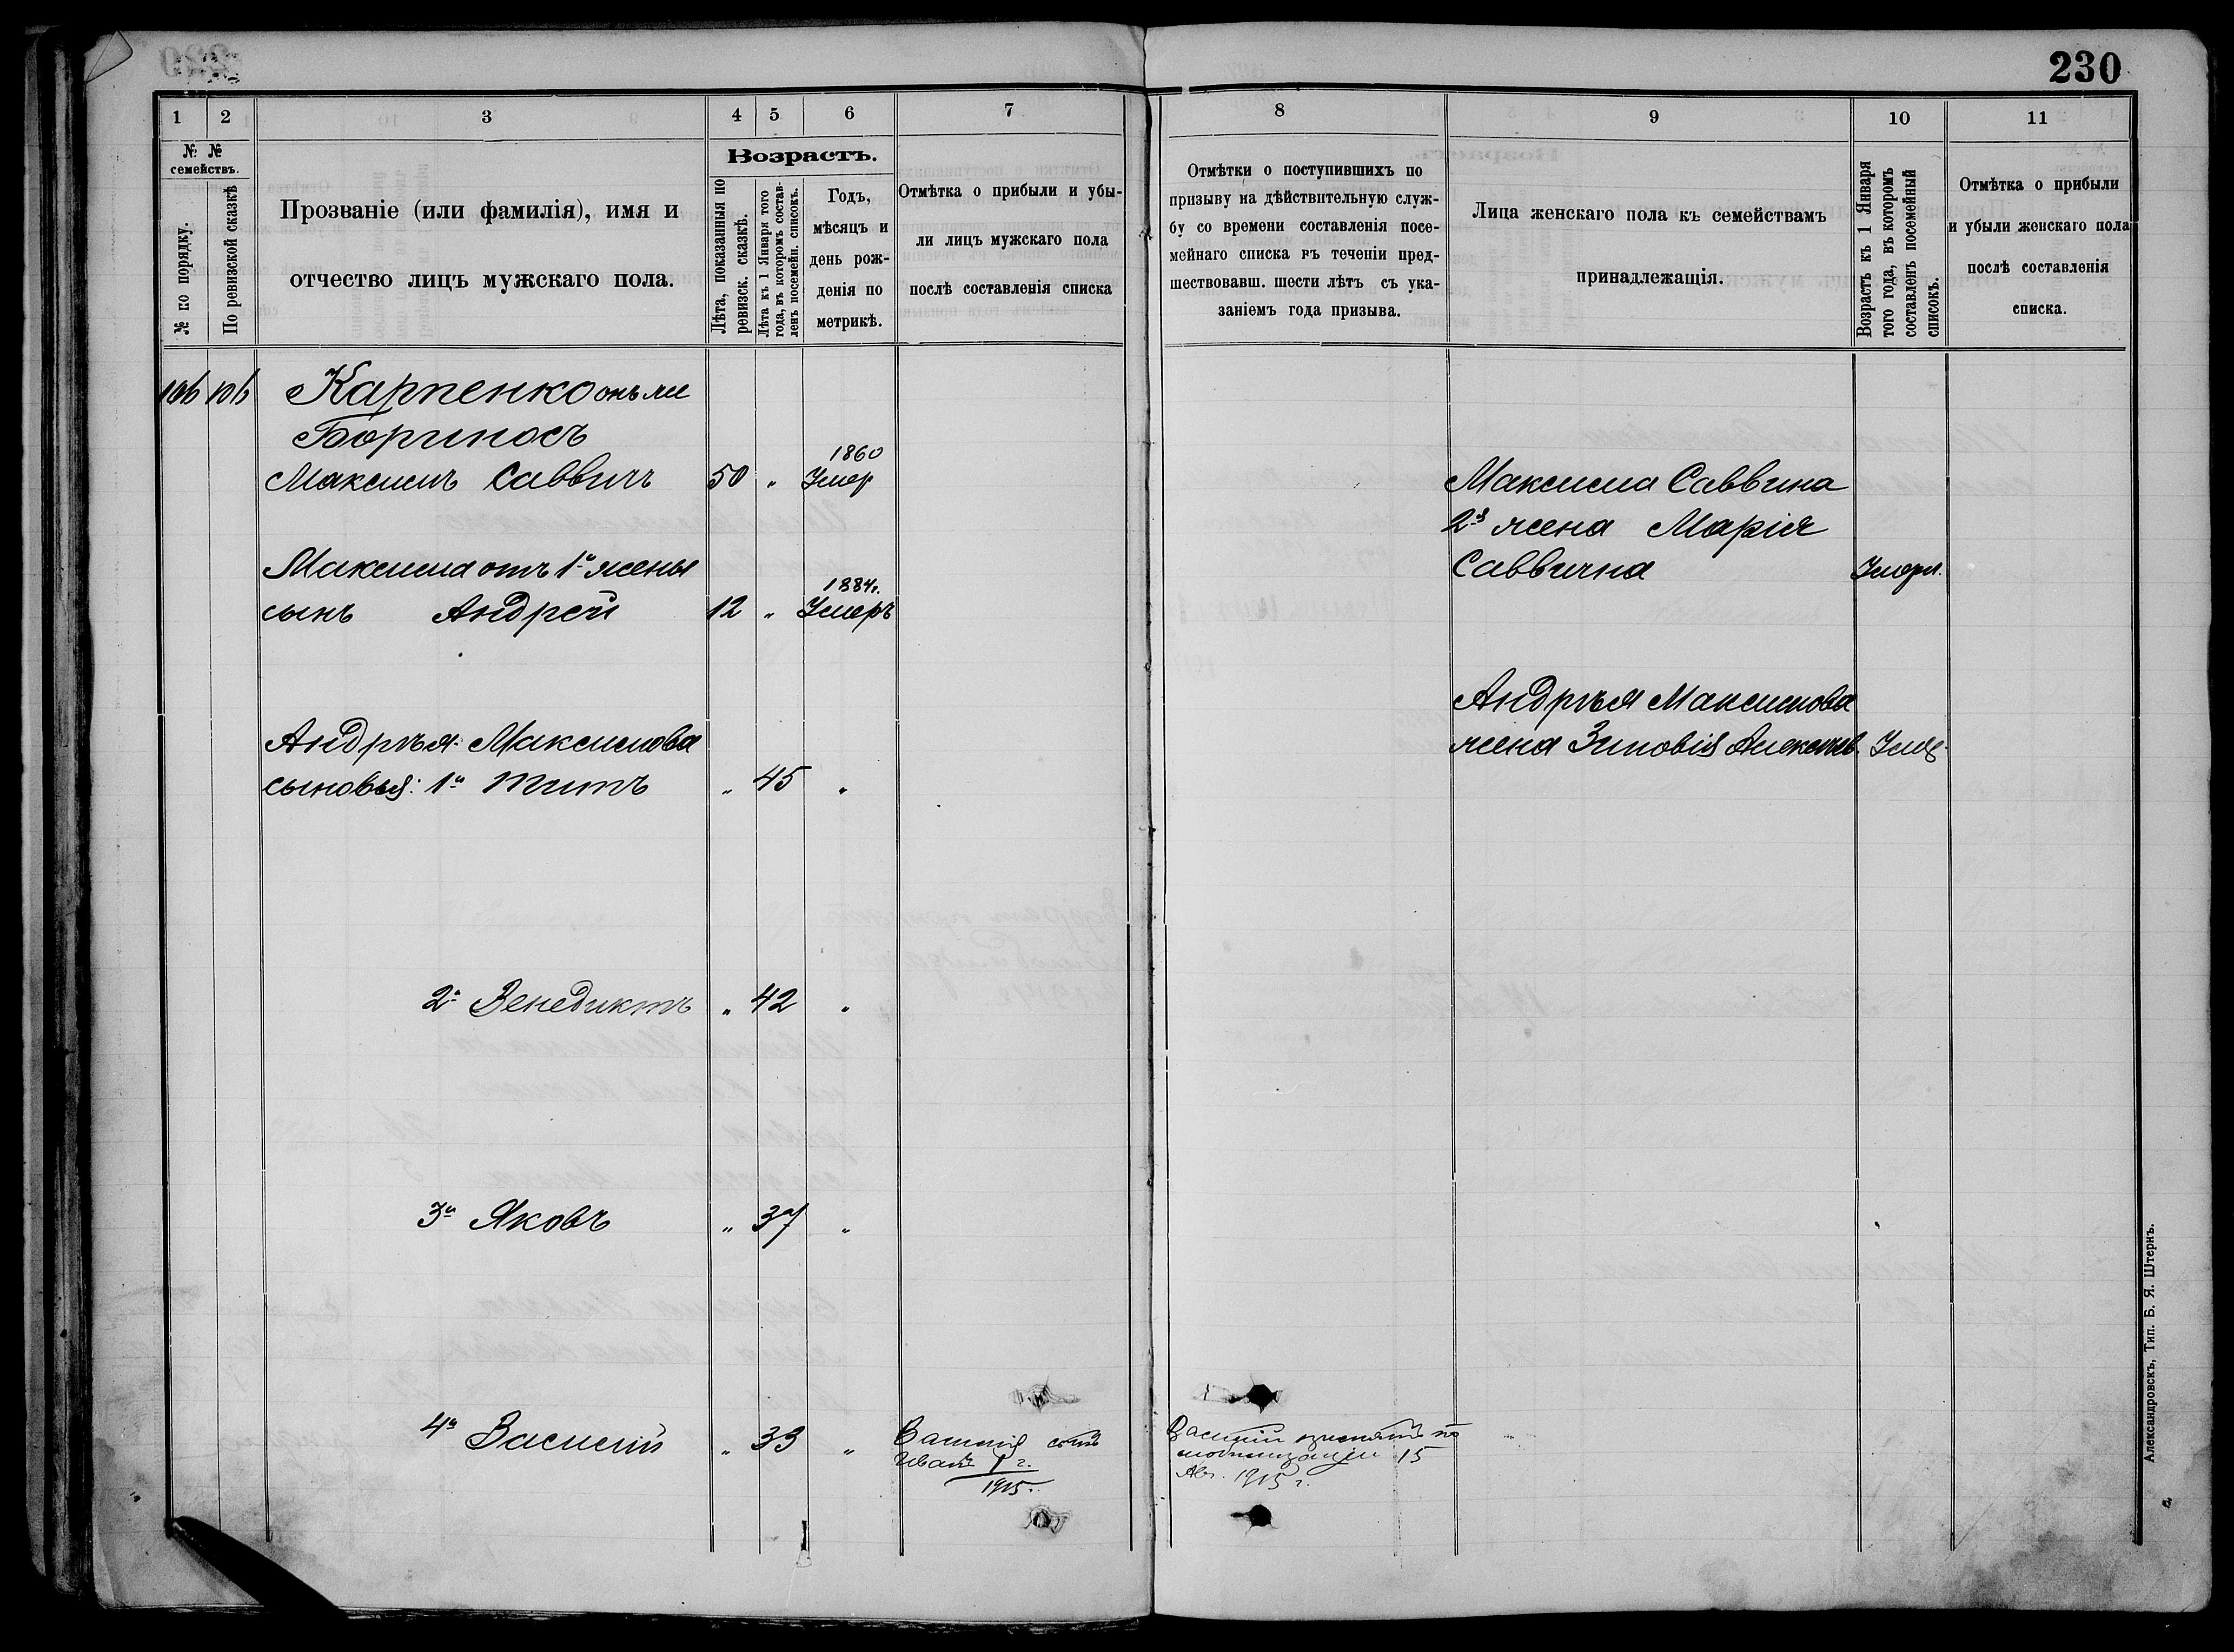 230
1 2 3 4 5 6 7 8 9 10 11
№ №
семействъ.
№ по порядку.
По ревизской сказкѣ
Прозваніе (или фамилія), имя и
отчество лицъ мужскаго пола.
Возрастъ.
Лѣта, показанныя по
ревизск. сказкѣ.
Лѣта къ 1 Января того
года, въ которомъ состав-
ленъ посемейн. списокъ.
Годъ,
мѣсяцъ и
день рож-
денія по
метрикѣ.
Отмѣтка о прибыли и убы-
ли лицъ мужскаго пола
послѣ составленія списка
Отмѣтки о поступившихъ по
призыву на дѣйствительную служ-
бу со времени составленія посе-
мейнаго списка въ теченіи пред-
шествовавш. шести лѣтъ съ ука-
заніемъ года призыва.
Лица женскаго пола къ семействамъ
принадлежащія.
Возрастъ къ 1 Января
того года, въ которомъ
составленъ посемейный
списокъ.
Отмѣтка о прибыли
и убыли женскаго пола
послѣ составленія
списка.
106 106 Карпенко онъ ли
Бориносъ
1860
Максимъ Саввичъ 50 „ Умер
Максима отъ 1й жены
1884г.
сынъ Андрей 12 „ Умеръ
Андрѣя Максимова
сыновья: 1й Титъ „ 45 „
2й Венедиктъ „ 42 „
3й Яковъ „ 37 „
4й Василий „ 33 „
Василія сынъ
Иванъ 1 г.
1915.
Василий взиматъ по
мобилизаціи 15
Авг. 1915 г.
Максима Саввича
2я жена Марія
Саввична Умерл.
Андрѣя Максимова
жена Зиновія Алексѣев. Уме
Александровскъ, Тип. Б. Я. Штернъ.